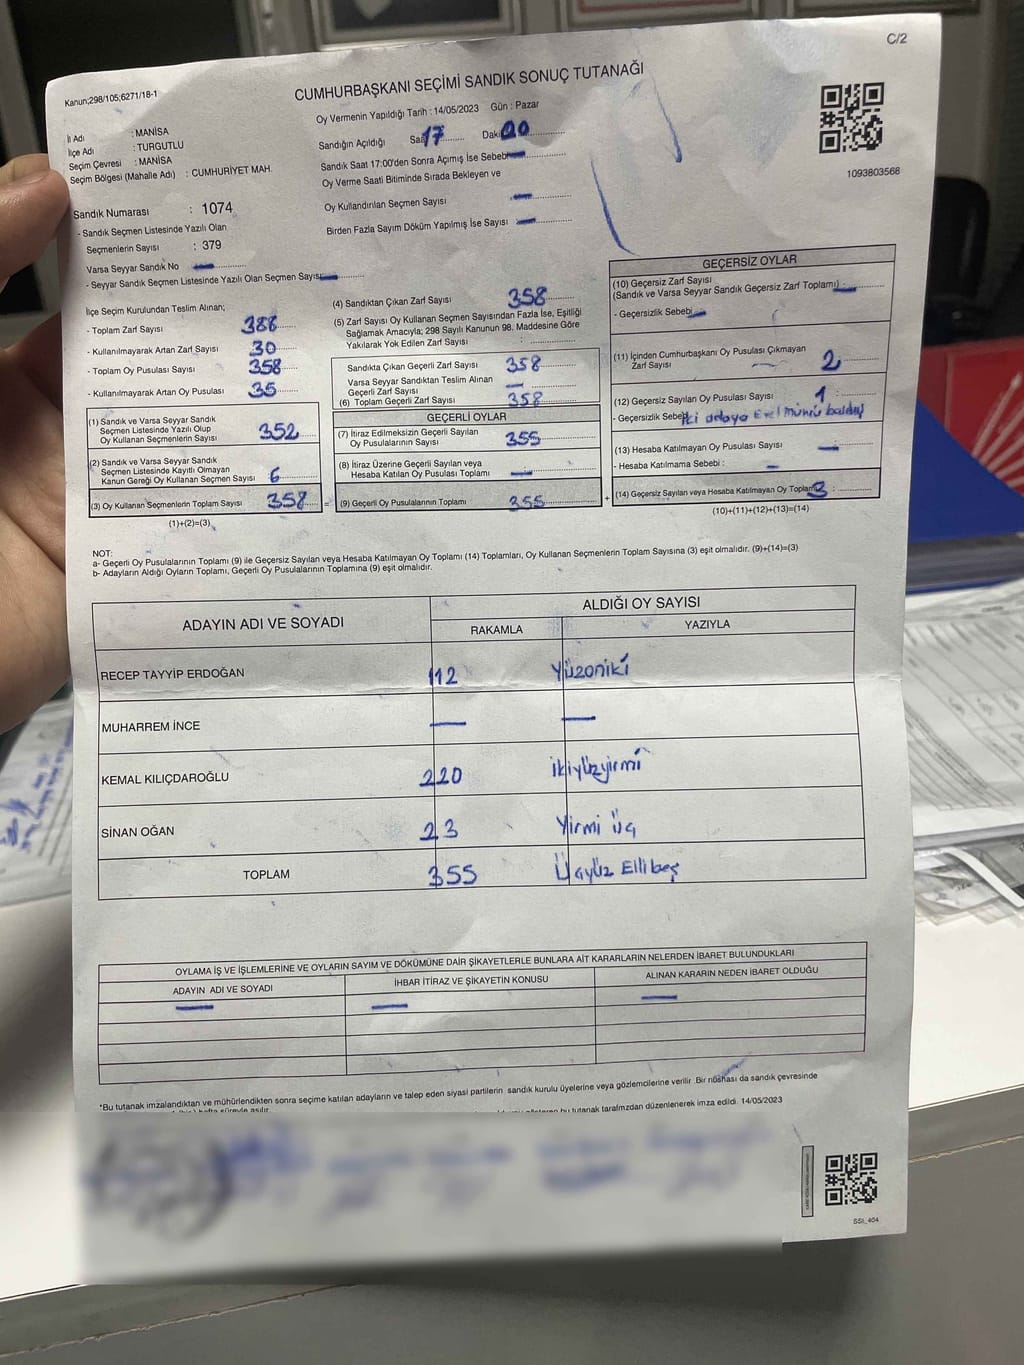 C/2
Kanun;298/105;6271/18-1
CUMHURBAŞKANI SEÇİMİ SANDIK SONUÇ TUTANAĞI
İl Adı : MANİSA
İlçe Adı : TURGUTLU
Seçim Çevresi : MANİSA
Seçim Bölgesi (Mahalle Adı) : CUMHURİYET MAH.
Sandık Numarası : 1074
- Sandık Seçmen Listesinde Yazılı Olan
Seçmenlerin Sayısı : 379
Varsa Seyyar Sandık No —
- Seyyar Sandık Seçmen Listesinde Yazılı Olan Seçmen Sayısı —
Oy Vermenin Yapıldığı Tarih : 14/05/2023 Gün : Pazar
Sandığın Açıldığı Saat 17 Daki 00
Sandık Saat 17:00'den Sonra Açımış İse Sebebi —
Oy Verme Saati Bitiminde Sırada Bekleyen ve
Oy Kullandırılan Seçmen Sayısı —
Birden Fazla Sayım Döküm Yapılmış İse Sayısı —
1093803568
İlçe Seçim Kurulundan Teslim Alınan;
- Toplam Zarf Sayısı 388
- Kullanılmayarak Artan Zarf Sayısı 30
- Toplam Oy Pusulası Sayısı 358
- Kullanılmayarak Artan Oy Pusulası 35
(1) Sandık ve Varsa Seyyar Sandık
Seçmen Listesinde Yazılı Olup
Oy Kullanan Seçmenlerin Sayısı 352
(2) Sandık ve Varsa Seyyar Sandık
Seçmen Listesinde Kayıtlı Olmayan
Kanun Gereği Oy Kullanan Seçmen Sayısı 6
(3) Oy Kullanan Seçmenlerin Toplam Sayısı 358
(1)+(2)=(3)
(4) Sandıktan Çıkan Zarf Sayısı 358
(5) Zarf Sayısı Oy Kullanan Seçmen Sayısından Fazla İse, Eşitliği
Sağlamak Amacıyla; 298 Sayılı Kanunun 98. Maddesine Göre
Yakılarak Yok Edilen Zarf Sayısı :
Sandıkta Çıkan Geçerli Zarf Sayısı 358
Varsa Seyyar Sandıktan Teslim Alınan
Geçerli Zarf Sayısı —
(6) Toplam Geçerli Zarf Sayısı 358
GEÇERLİ OYLAR
(7) İtiraz Edilmeksizin Geçerli Sayılan
Oy Pusulalarının Sayısı 355
(8) İtiraz Üzerine Geçerli Sayılan veya
Hesaba Katılan Oy Pusulası Toplamı —
= (9) Geçerli Oy Pusulalarının Toplamı 355 +
GEÇERSİZ OYLAR
(10) Geçersiz Zarf Sayısı
(Sandık ve Varsa Seyyar Sandık Geçersiz Zarf Toplamı) —
- Geçersizlik Sebebi —
(11) İçinden Cumhurbaşkanı Oy Pusulası Çıkmayan
Zarf Sayısı 2
(12) Geçersiz Sayılan Oy Pusulası Sayısı 1
- Geçersizlik Sebebi İki adaya Evet mührü
(13) Hesaba Katılmayan Oy Pusulası Sayısı —
- Hesaba Katılmama Sebebi : —
(14) Geçersiz Sayılan veya Hesaba Katılmayan Oy Toplamı 3 :
(10)+(11)+(12)+(13)=(14)
NOT:
a- Geçerli Oy Pusulalarının Toplamı (9) ile Geçersiz Sayılan veya Hesaba Katılmayan Oy Toplamı (14) Toplamları, Oy Kullanan Seçmenlerin Toplam Sayısına (3) eşit olmalıdır. (9)+(14)=(3)
b- Adayların Aldığı Oyların Toplamı, Geçerli Oy Pusulalarının Toplamına (9) eşit olmalıdır.
ADAYIN ADI VE SOYADI
ALDIĞI OY SAYISI
RAKAMLA YAZIYLA
RECEP TAYYİP ERDOĞAN 112 Yüzoniki
MUHARREM İNCE — —
KEMAL KILIÇDAROĞLU 220 ikiyüzyirmi
SİNAN OĞAN 23 Yirmi üç
TOPLAM 355 Üçyüz Ellibeş
OYLAMA İŞ VE İŞLEMLERİNE VE OYLARIN SAYIM VE DÖKÜMÜNE DAİR ŞİKAYETLERLE BUNLARA AİT KARARLARIN NELERDEN İBARET BULUNDUKLARI
ADAYIN ADI VE SOYADI İHBAR İTİRAZ VE ŞİKAYETİN KONUSU ALINAN KARARIN NEDEN İBARET OLDUĞU
— — —
*Bu tutanak imzalandıktan ve mühürlendikten sonra seçime katılan adayların ve talep eden siyasi partilerin sandık kurulu üyelerine veya gözlemcilerine verilir .Bir nüshası da sandık çevresinde
bu tutanak tarafımızdan düzenlenerek imza edildi. 14/05/2023
SSI_404